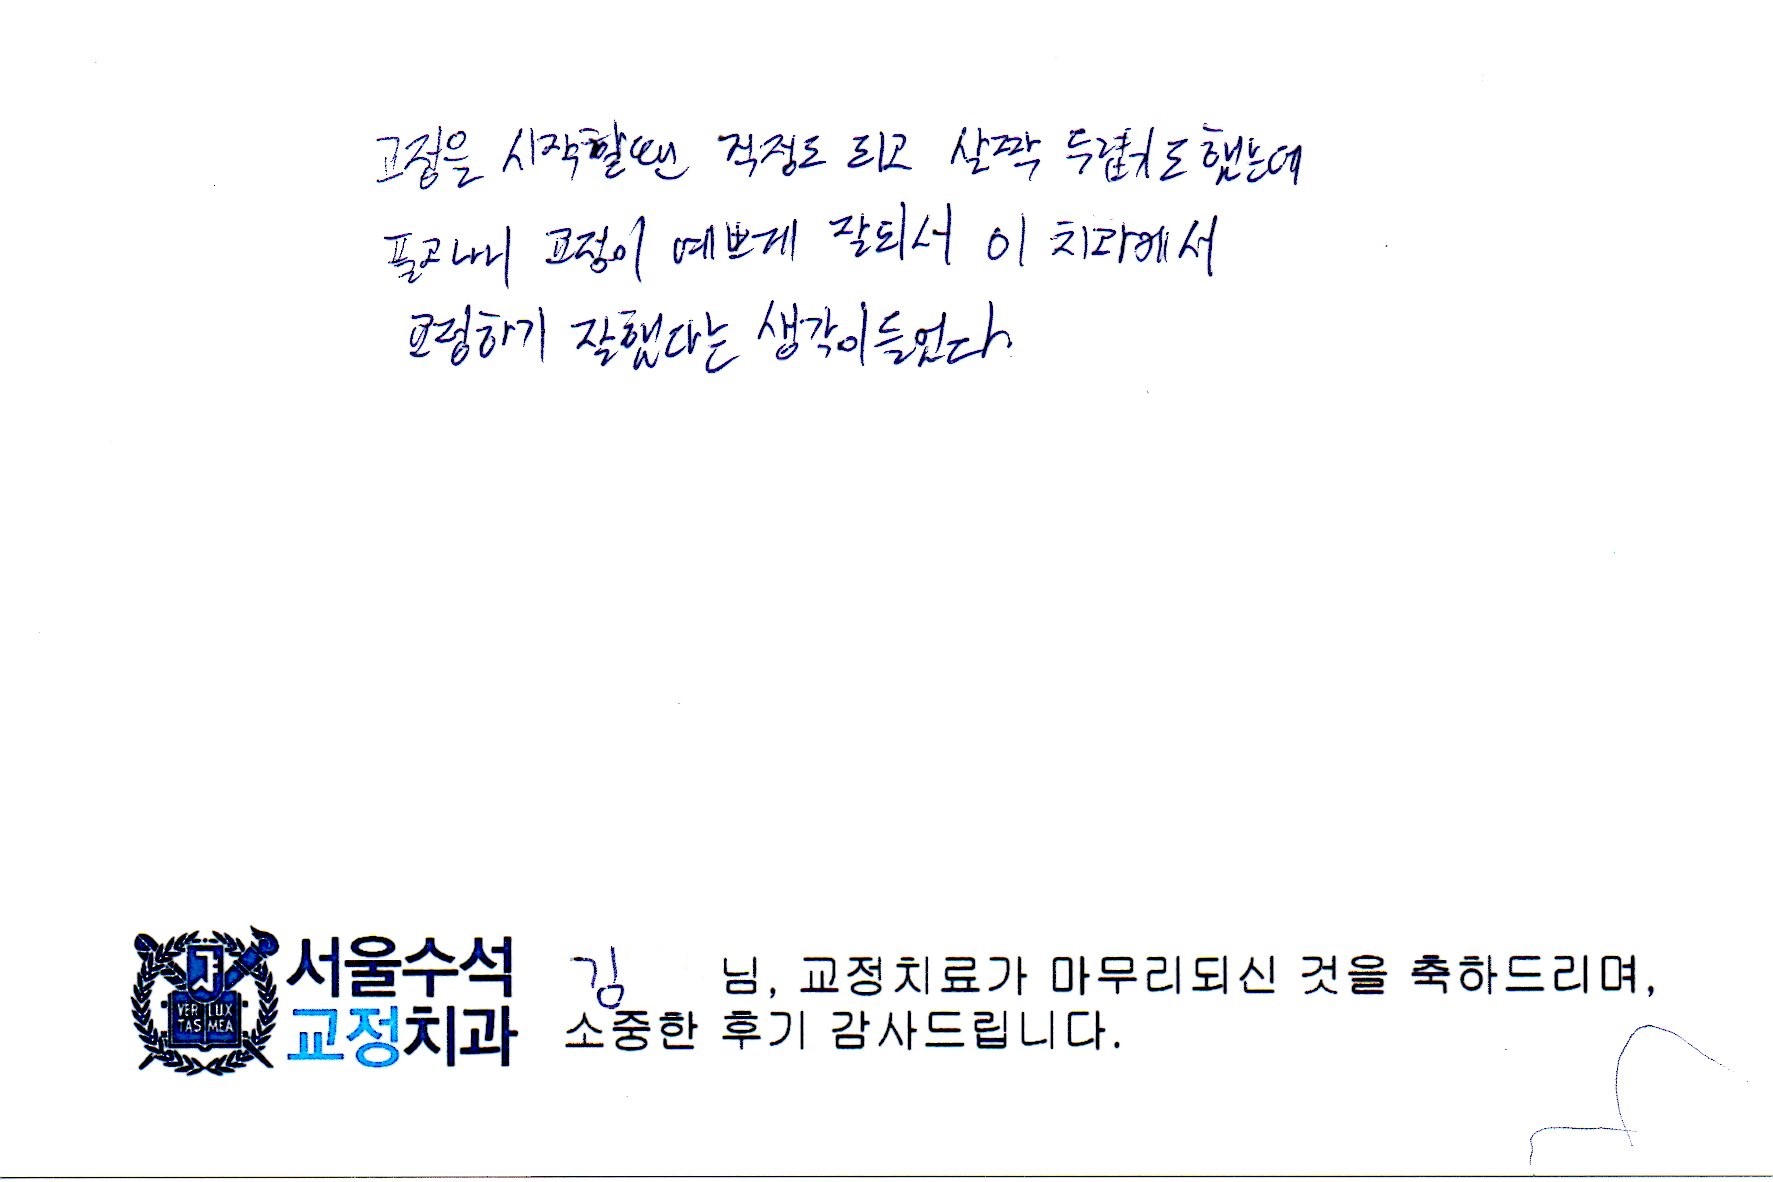 교정을 시작할땐 걱정도 되고 살짝 두렵기도 했는데
풀고나니 교정이 예쁘게 잘되서 이 치과에서
교정하기 잘했다는 생각이 들었다.
서울수석
교정치과
VERI LUX
TAS MEA
김 님, 교정치료가 마무리되신 것을 축하드리며,
소중한 후기 감사드립니다.